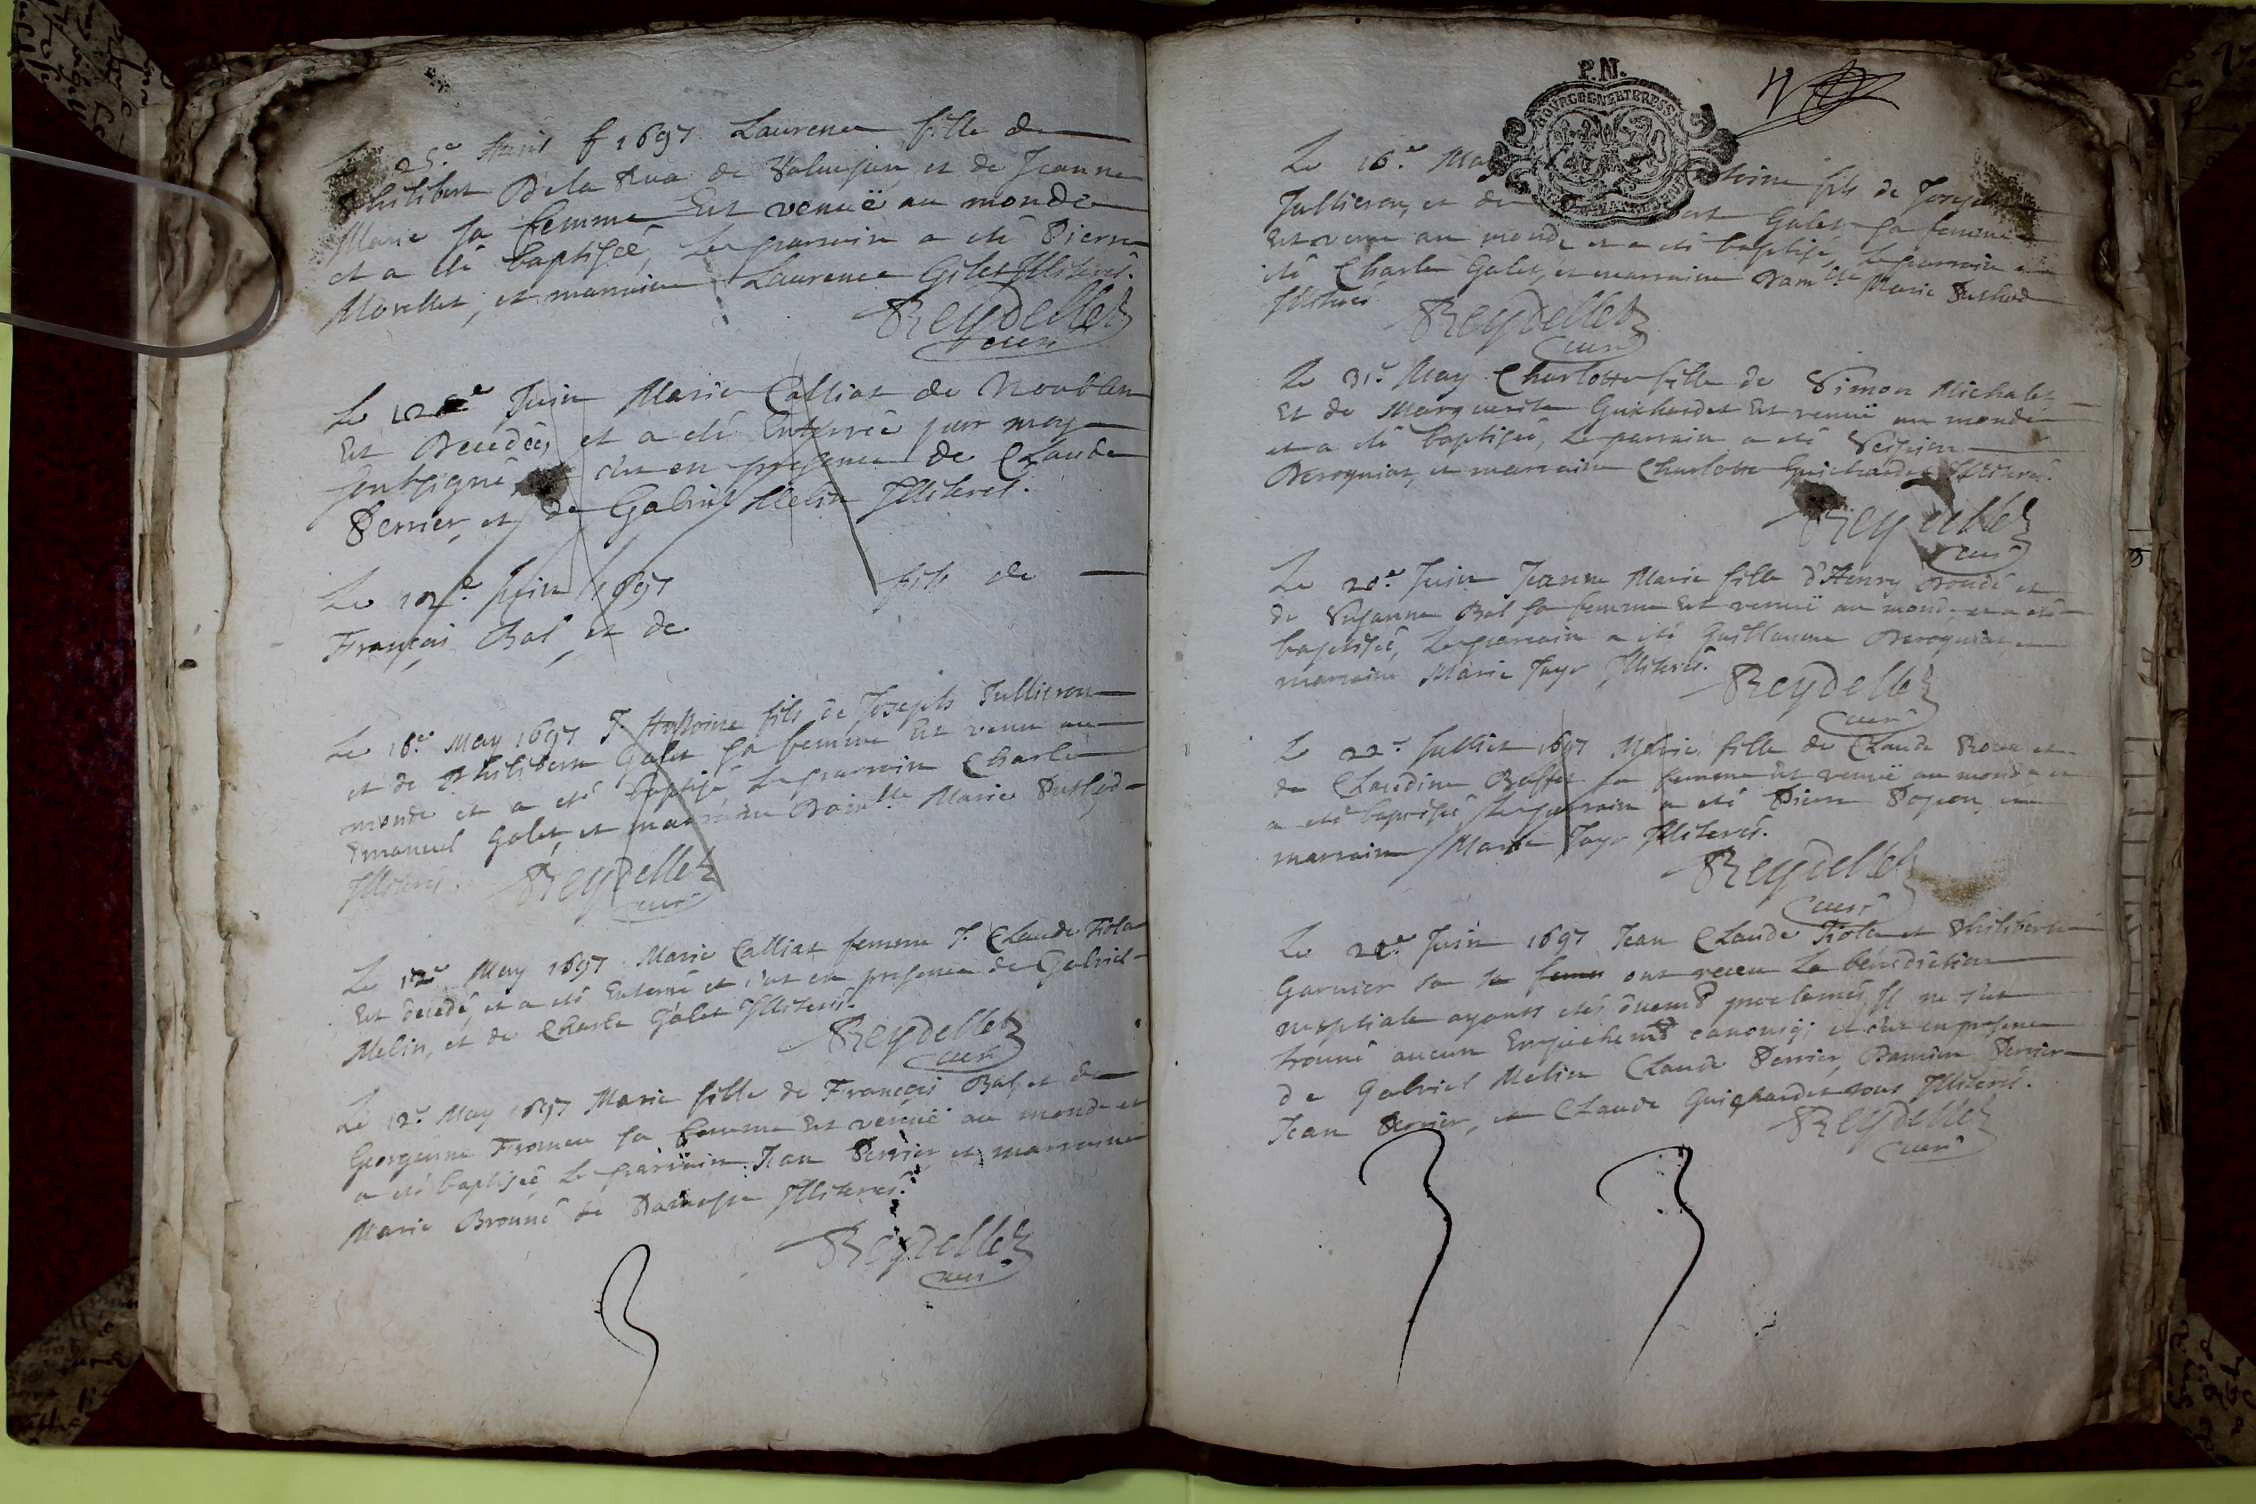 25.e Avril 1697 Laurence fille de
Philibert Dela Rua de et de Jeanne
Marie sa femme Est venuë au monde
et a eté baptisée, Le parrain a eté Pierre
Morellet, et marraine Laurence Gilet Illiterés.
Reydellet
curé
Le 12.e Juin Marie Calliat de
Est Decedée, et a eté Enterrée par moy
soubsigné, c'est en presence de Claude
Perrier, et de Gabriel Melin Illiterés.
Le 12.e Juin 1697 fils de
François Bal, et de
Le 16.e May 1697 Anthoine fils de Joseph Jullieron
et de Philiberte Galet sa femme Est venu au
monde et a eté baptisé Le parrain Charle
Emanuel Galet, et marraine Dam.lle Marie
Illiterés.
Reydellet
curé
Le 12.e May 1697 Marie Calliat femme Claude Fiola
Est decedé, et a eté Enterré et c'est en presence de Gabriel
Melin, et de Charle Galet Illiterés.
Reydellet
curé
Le 12.e May 1697 Marie fille de François Bal, et de
Georgeme sa femme Est venuë au monde et
a eté baptisée Le parrain Jean Perrier, et marraine
Marie de Illiterés.
Reydellet
curé
P.N.
Le 16.e May fils de Joseph
Jullieron, et de Galet sa femme
Est venu au monde et a eté baptisé, Le parrain a
eté Charle Galet, et marraine Dam.lle Marie
Illiterés
Reydellet
curé
Le 31.e May Charlotte fille de Simon Michalet
Et de Marguerite Guichardet Est venuë au monde
et a eté baptisée, Le parrain a eté
Deroquiat, et marraine Charlotte Guichardet Illiterés.
Reydellet
curé
Le 20.e Juin Jeanne Marie fille d'Henry et
de Susanne Bal sa femme Est venuë au monde et a eté
baptisée, Le parrain a eté Guillaume Deroquiat, et
marraine Marie Jayr Illiterés.
Reydellet
curé
Le 22.e Julliet 1697 Marie fille de Claude et
de Claudine sa femme Est venuë au monde et
a eté baptisée, Le parrain a eté Pierre et
marraine Marie Jayr Illiterés.
Reydellet
curé
Le Juin 1697 Jean Claude Fiola et Philiberte
Garnier sa femme ont receu La bénédiction
nuptiale ayants etés proclamés, Il ne s'est
trouvé aucun Empechem.t canoniq; et c'est en presence
de Gabriel Melin Claude Perrier, Damien Perrier
Jean Perrier, et Claude Guichardet tous Illiterés.
Reydellet
curé